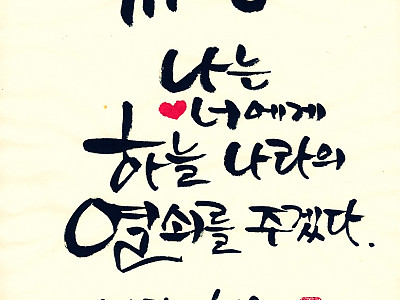 나는
너에게
하늘 나라의
열쇠를 주겠다.